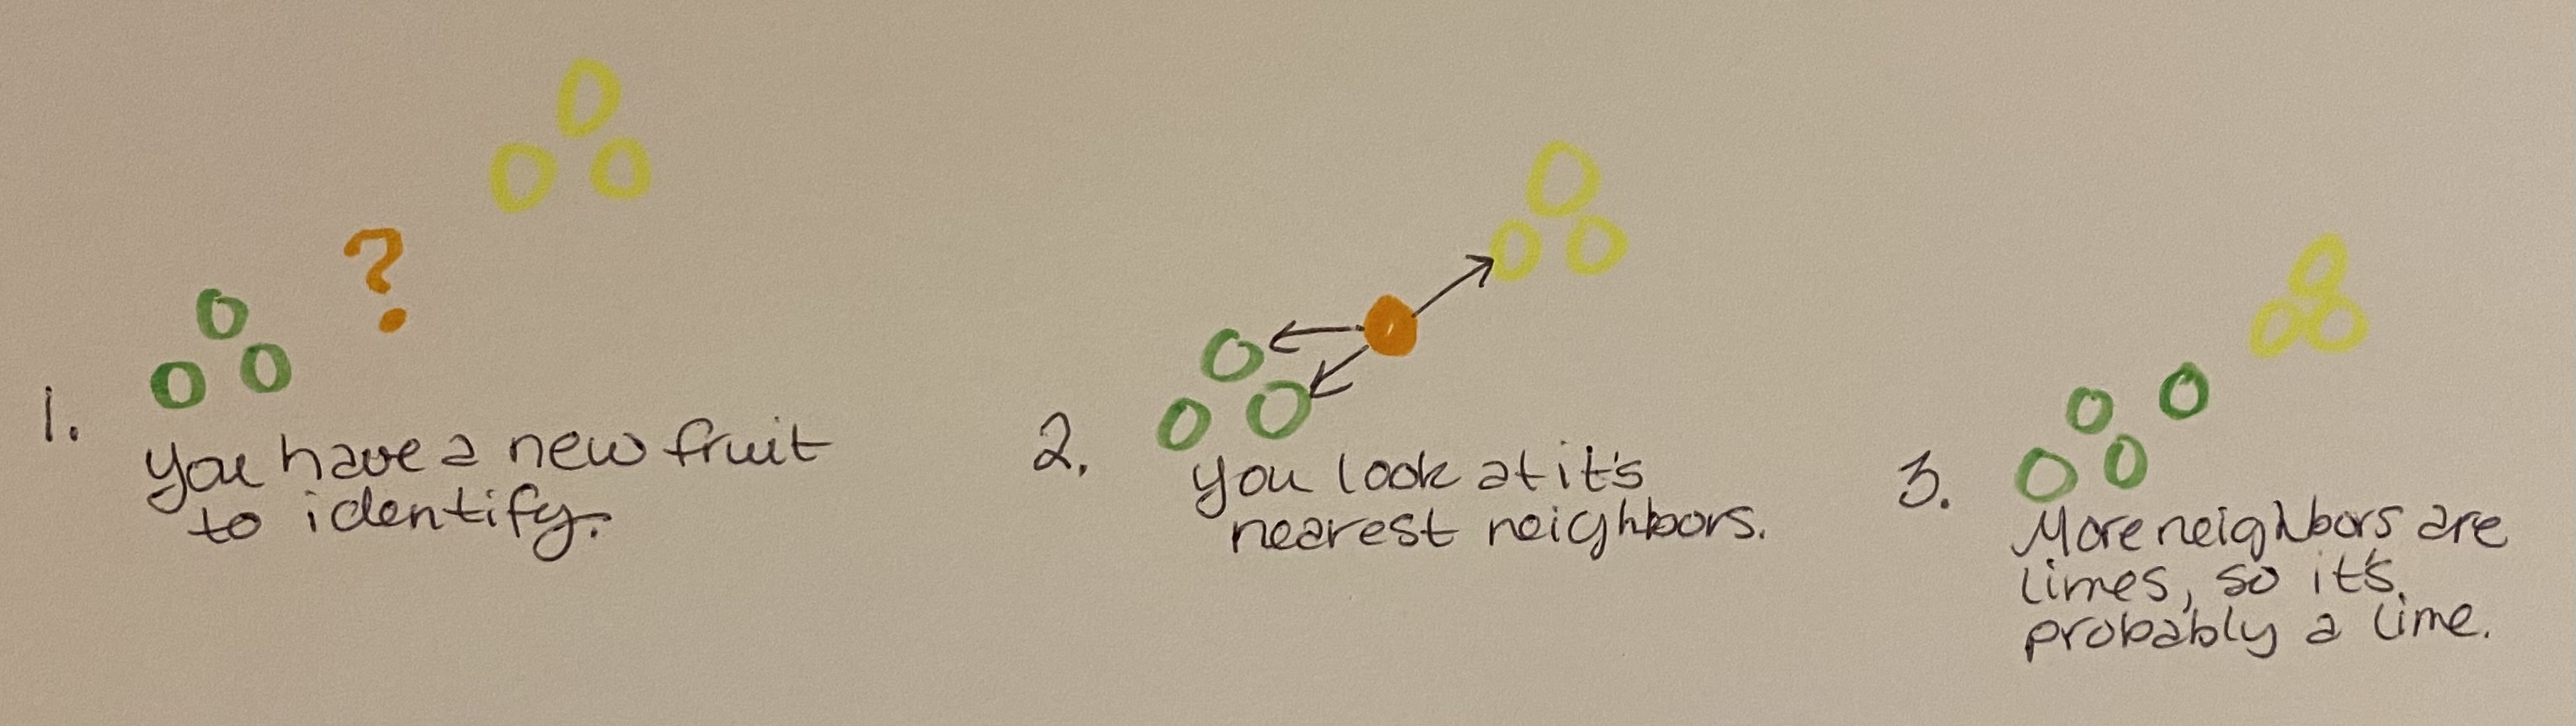 ?
1.
you have a new fruit
to identify.
2.
you look at it's
nearest neighbors.
3.
More neighbors are
limes, so it's
probably a lime.